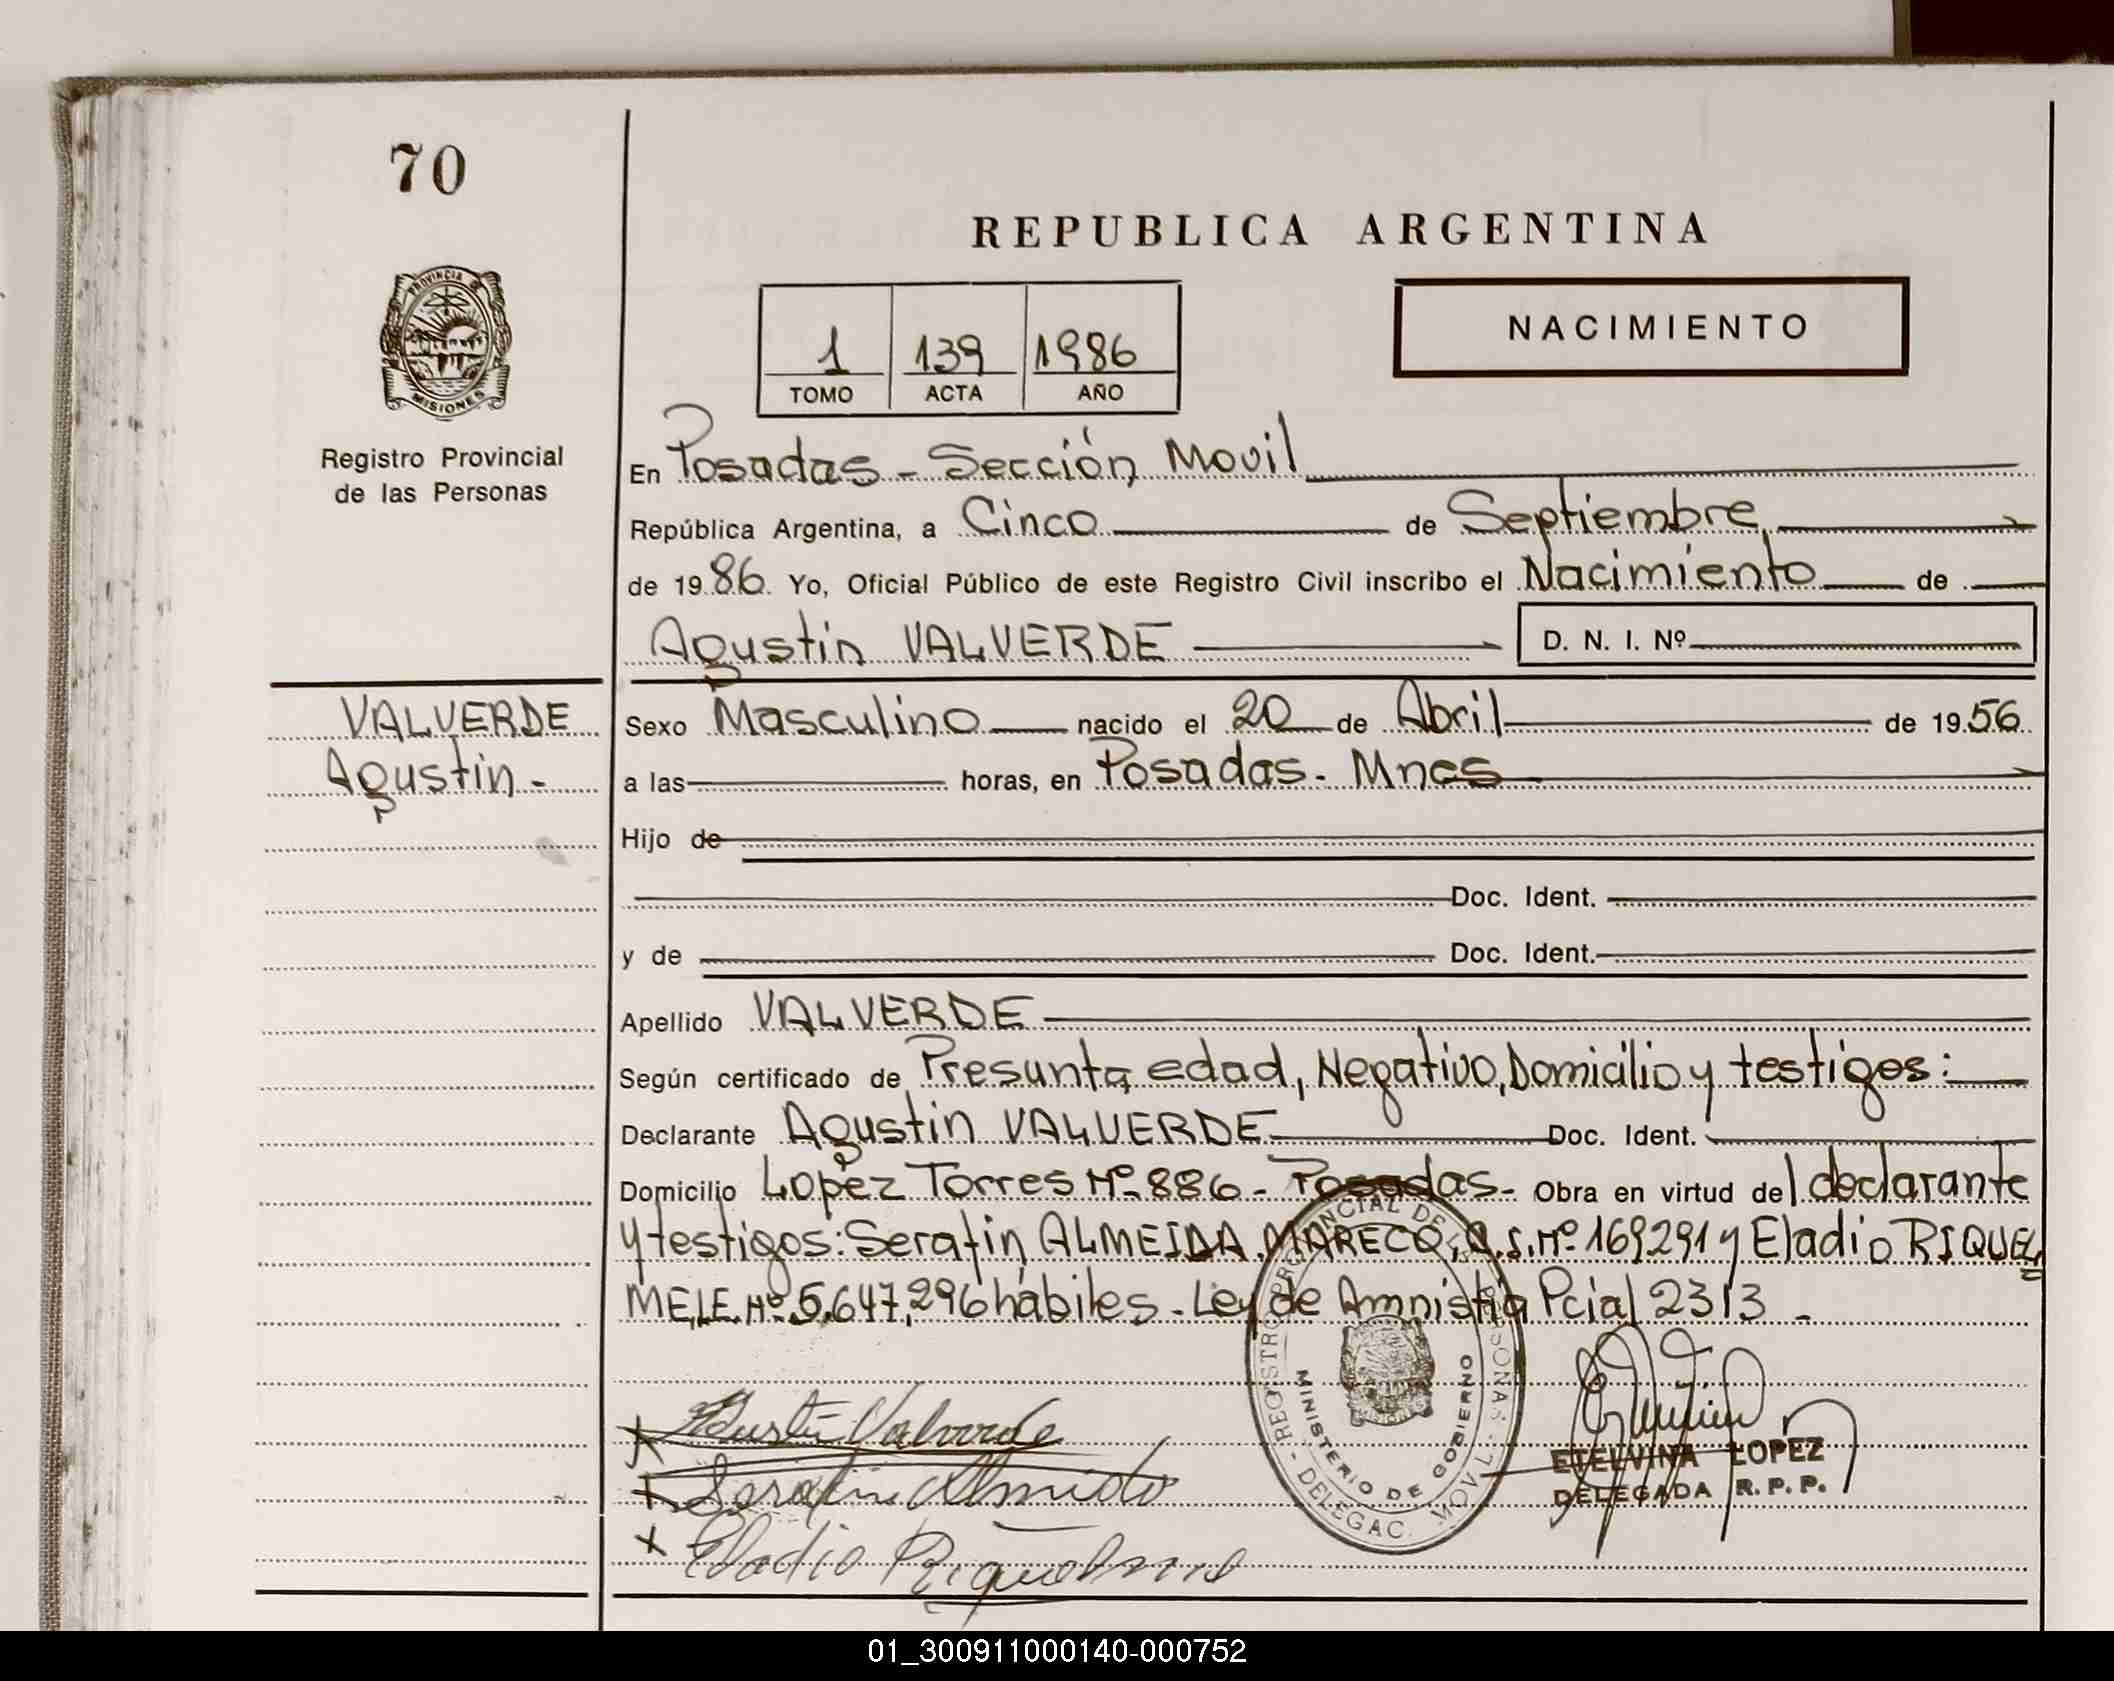 70
REPUBLICA ARGENTINA
PROVINCIA
MISIONES
Registro Provincial
de las Personas
1 139 1986
TOMO ACTA AÑO
NACIMIENTO
En Posadas - Sección Movil
República Argentina, a Cinco de Septiembre
de 1986. Yo, Oficial Público de este Registro Civil inscribo el Nacimiento de
Agustin VALVERDE D. N. I. Nº
VALVERDE
Agustin -
Sexo Masculino nacido el 20 de Abril de 1956
a las horas, en Posadas - Mnes
Hijo de
Doc. Ident.
y de Doc. Ident.
Apellido VALVERDE
Según certificado de Presunta edad, Negativo, Domicilio y testigos:
Declarante Agustin VALVERDE Doc. Ident.
Domicilio Lopez Torres Nº 886 - Posadas - Obra en virtud del declarante
y testigos: Serafin ALMEIDA MARECO, C.S. Nº 169.291 y Eladio RIQUEL
ME L.E. Nº 5.647.296 hábiles - Ley de Amnistía Pcial 2313 -
Agustin Valverde
Serafin Almeida
Eladio Riquelme
REGISTRO PROVINCIAL DE LAS PERSONAS
MINISTERIO DE GOBIERNO
DELEGAC. MOVIL
ETELVINA LOPEZ
DELEGADA R. P. P.
01_300911000140-000752